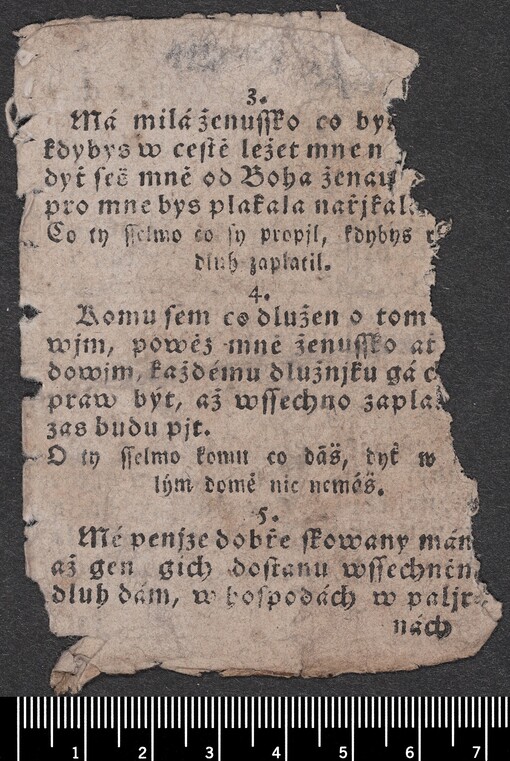 3.
Má milá ženussko co by
kdybys w cestě ležet mne n
dyť seš mně od Boha žena
pro mne bys plakala nařjkal
Co ty sselmo co sy propil, kdybys
dluh zaplatil.
4.
Komu sem co dlužen o tom
wjm, powěz mně ženussko ať
dowjm, každému dlužnjku gá c
praw být, až wssechno zapla
zas budu pjt.
O ty sselmo komu co dáš, dyť w
lým domě nic nemáš.
5.
Mé penjze dobře skowany mám
až gen gich dostanu wssechněm
dluh dám, w hospodách w paljr
nách
1 2 3 4 5 6 7